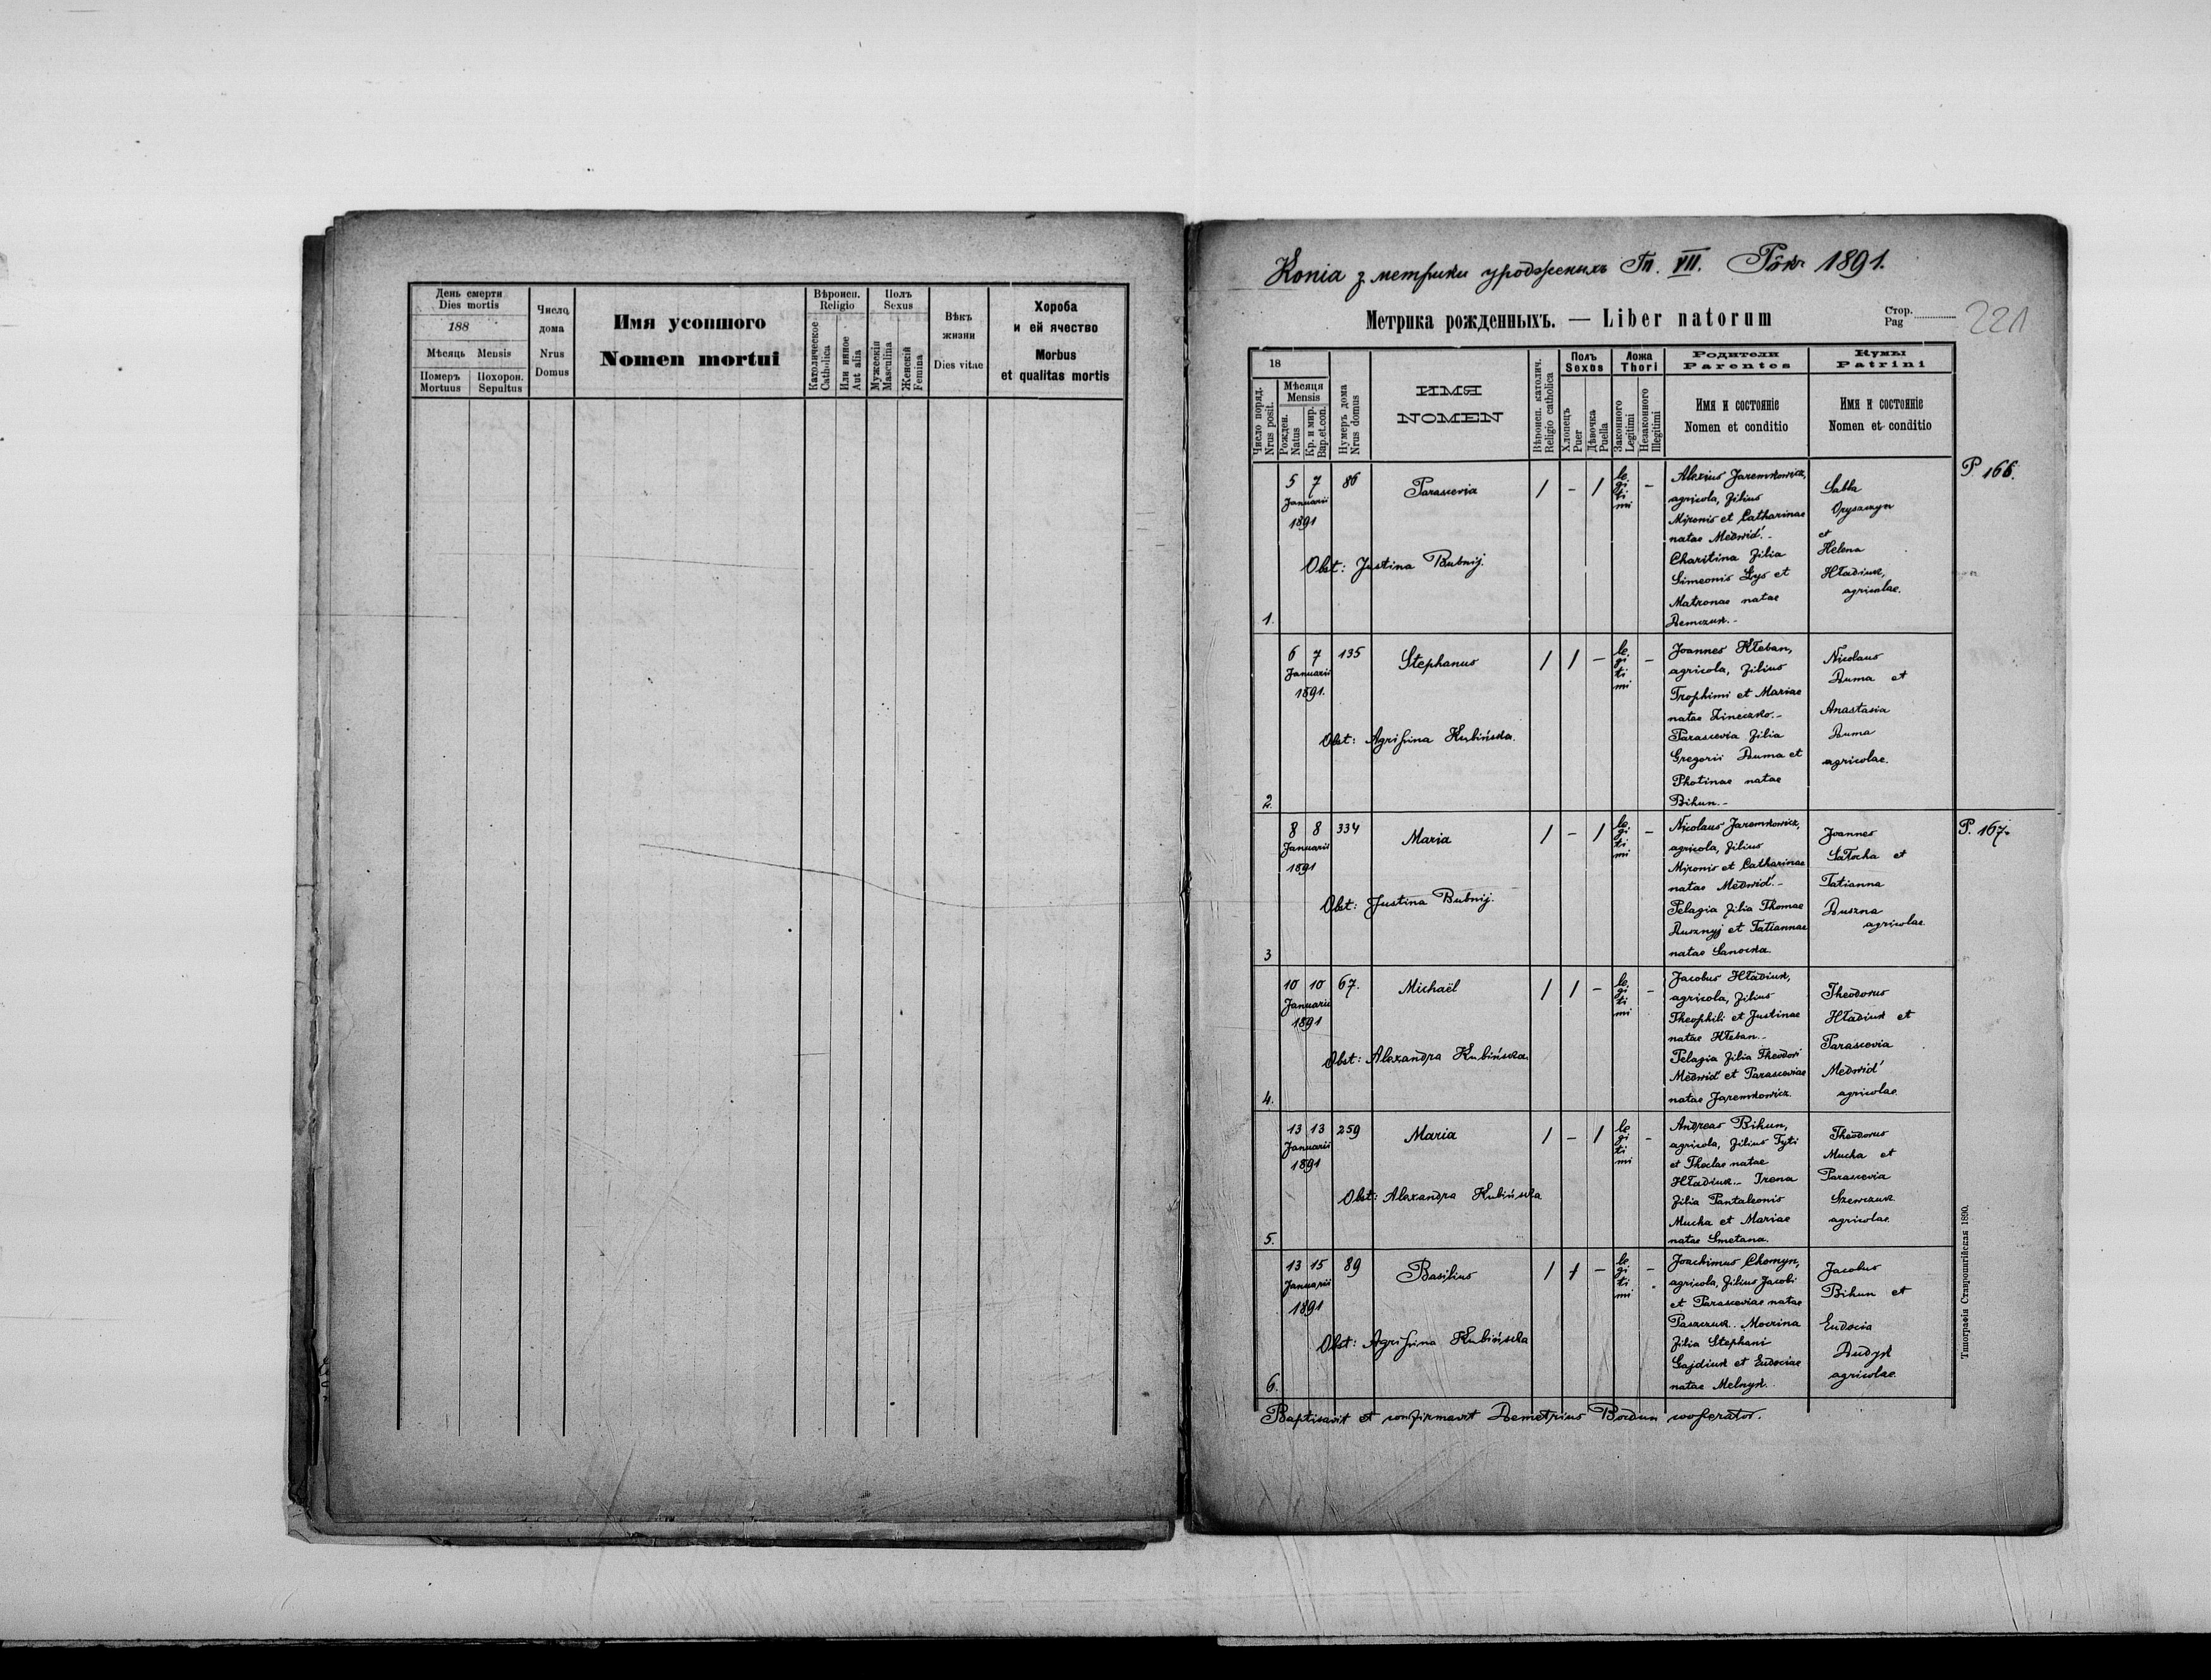 День смерти
Dies mortis
188
Мѣсяць Mensis
Померъ Mortuus
Похорон. Sepultus
Число дома
Nrus Domus
Имя усопшого
Nomen mortui
Вѣроисп.
Religio
Католическое
Catholica
Или иняное
Aut alia
Полъ
Sexus
Мужескій
Masculina
Женскій
Femina
Вѣкъ жизни
Dies vitae
Хороба
и ей ячество
Morbus
et qualitas mortis
Копіа з метрики уродженихъ Тп. VII. Рôкъ 1891.
Метрика рожденныхъ. — Liber natorum
Стор.
Pag
221
18
Число поряд.
Nrus posit.
Мѣсяця
Mensis
Рожден.
Natus
Кр. и мир.
Bap.et.con.
Нумеръ дома
Nrus domus
ИМЯ
NOMEN
Вѣроисп. католич.
Religio catholica
Полъ
Sexus
Хлопець
Puer
Дѣвочка
Puella
Ложа
Thori
Законного
Legitimi
Незаконного
Illegitimi
Родители
Parentes
Имя и состояніе
Nomen et conditio
Кумы
Patrini
Имя и состояніе
Nomen et conditio
1.
5 7
Januarii
1891
86
Parascevia
/ - /
le
gi
ti
mi
-
Alexius Jaremkowicz,
agricola, filius
Mironis et Catharinae
natae Medwid'.-
Charitina filia
Simeonis Lys et
Matronae natae
Demczuk.-
Sabba
Oryszczyn
et
Helena
Hładiuk,
agricolae.
P 166.
Obst: Justina Bubnij.
2.
6 7
Januarii
1891.
135
Stephanus
/ / -
le
gi
ti
mi
-
Joannes Hłeban,
agricola, filius
Trophimi et Mariae
natae Zineczko.-
Parascevia filia
Gregorii Duma et
Photinae natae
Bihun.-
Nicolaus
Duma et
Anastasia
Duma
agricolae.
Obst: Agrifina Kubińska.
3
8 8
Januarii
1891
334
Maria
/ - /
le
gi
ti
mi
-
Nicolaus Jaremkowicz,
agricola, filius
Mironis et Catharinae
natae Medwid'.-
Pelagia filia Thomae
Dusznyj et Tatiannae
natae Sanocka.
Joannes
Sałocha et
Tatianna
Duszna
agricolae.
P. 167.
Obst: Justina Bubnij.
4.
10 10
Januarii
1891
67.
Michaël
/ / -
le
gi
ti
mi
-
Jacobus Hładiuk,
agricola, filius
Theophili et Justinae
natae Hłeban.-
Pelagia filia Theodori
Medwid' et Parasceviae
natae Jaremkowicz.
Theodorus
Hładiuk et
Parascevia
Medwid'
agricolae.
Obst: Alexandra Kubińska.
5.
13 13
Januarii
1891
259
Maria
/ - /
le
gi
ti
mi
-
Andreas Bihun,
agricola, filius Tyti
et Theclae natae
Hładiuk.- Irena
filia Pantaleonis
Mucha et Mariae
natae Smetana.
Theodorus
Mucha et
Parascevia
Szewczuk
agricolae.
Obst: Alexandra Kubińska
6.
13 15
Januarii
1891
89
Basilius
/ / -
le
gi
ti
mi
-
Joachimus Chomyn,
agricola, filius Jacobi
et Parasceviae natae
Paszczuk. Mocrina
filia Stephani
Gajdiuk et Eudociae
natae Melnyk.
Jacobus
Bihun et
Eudocia
Dudyk
agricolae.
Obst: Agrifina Kubińska
Baptisavit et confirmavit Demetrius Bordun cooperator.
Типографія Ставропигійская 1890.